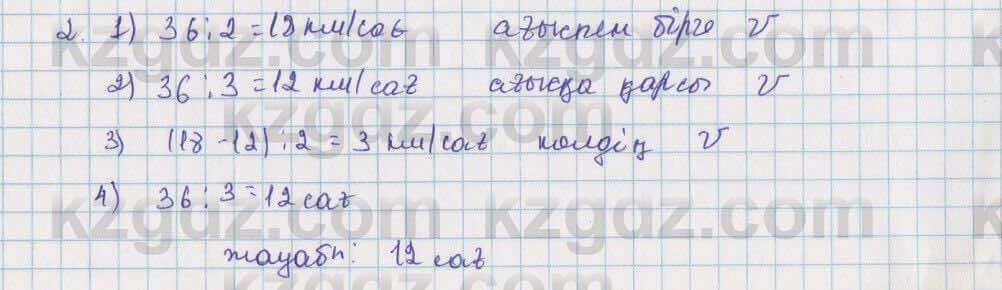 2. 1) 36 : 2 = 18 км/сағ ағыспен бірге v
2) 36 : 3 = 12 км/сағ ағысқа қарсы v
3) (18 - 12) : 2 = 3 км/сағ көлдің v
4) 36 : 3 = 12 сағ
жауабы: 12 сағ
kzgdz.com kzgdz.com
kzgdz.com
kzgdz.com kzgdz.com